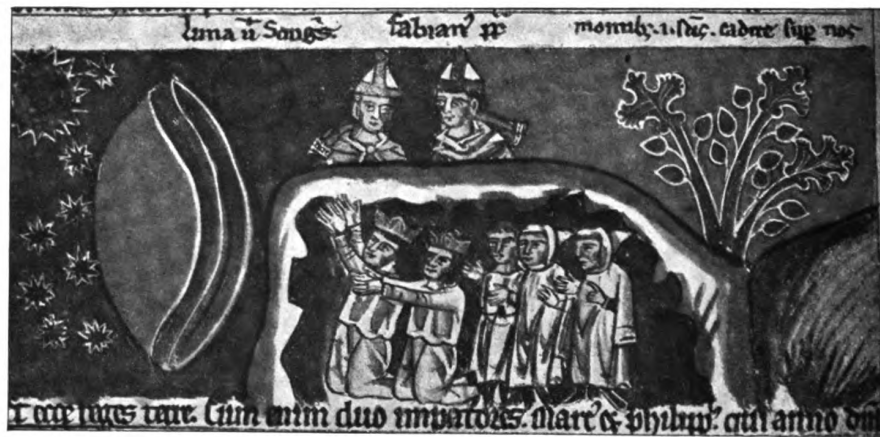 luna ñ Sangs fabian' pp montibȝ . i . scīs . cadite sup nos
ecce reges terre . Cum enim duo impatores . marc' & philipp' qui anno dm